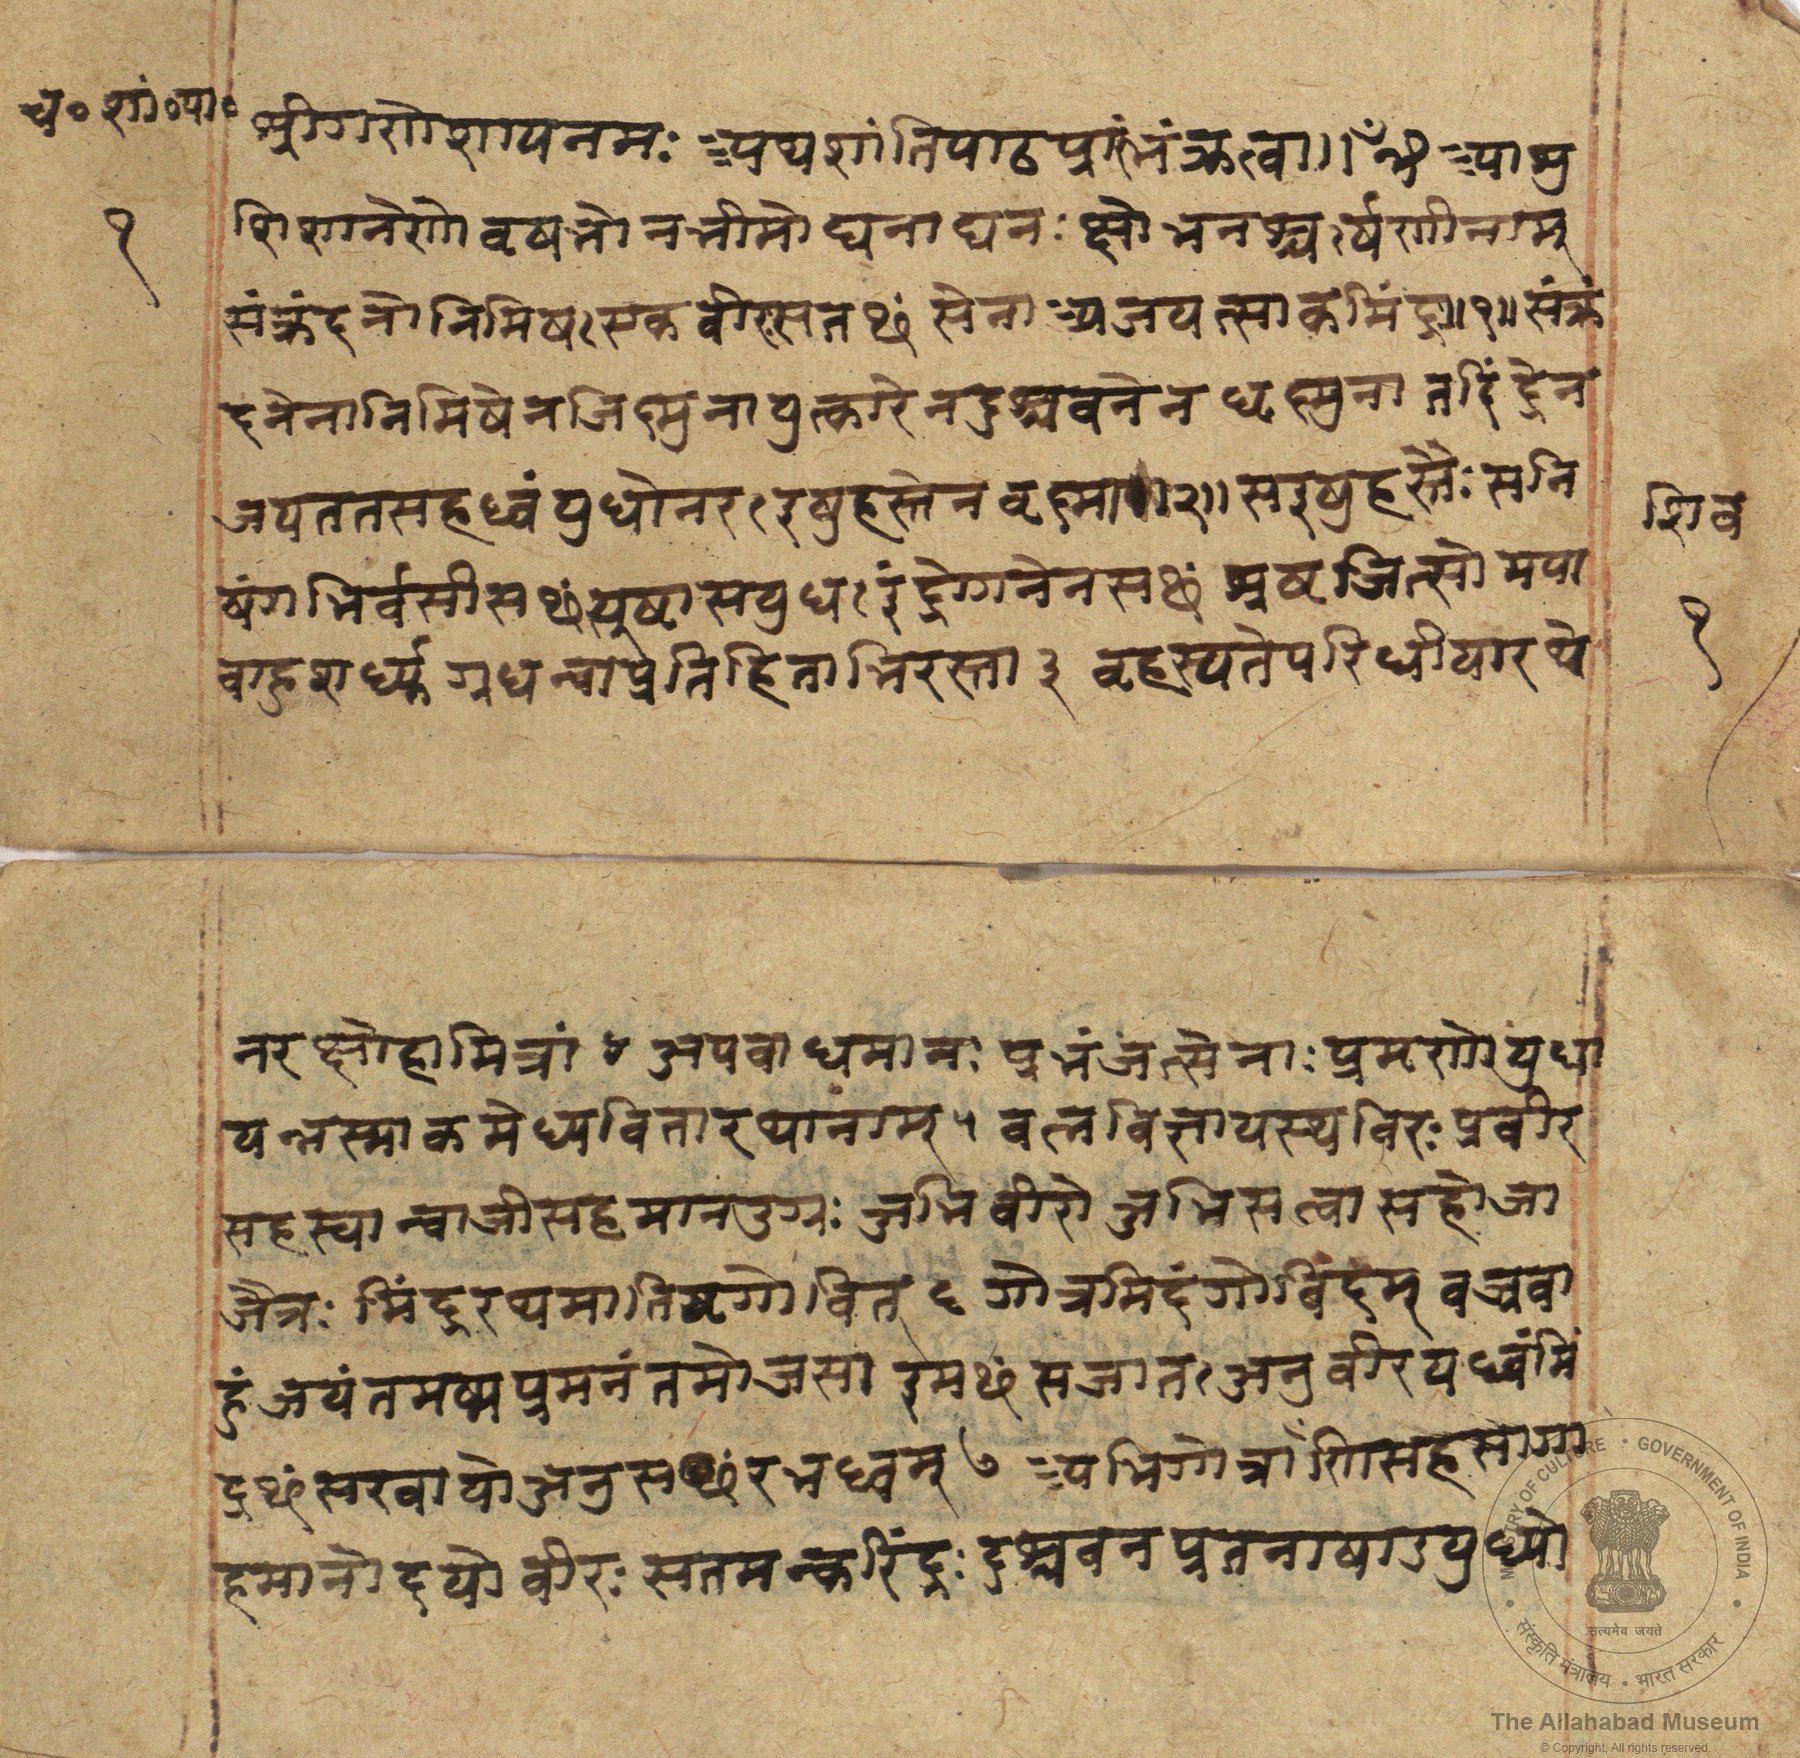 च॰ शां॰पा॰
श्रीगणेशायनमः अथशांतिपाठप्रारंभंकृत्वा।। ॐ आशु
१
शिशानोणो वृषभो नभीमो घनाघनः क्षोभनश्चर्षणीनाम्
संक्रंदनोनिमिषः सकवीरः सतᳪ सेना अजयत्साकमिंद्रः॥१॥ संक्रं
दनेनानिमिषेनजिष्णुनायुत्कारेनदुश्च्यवनेन धृष्णुना तदिंद्रेन
जयततसहध्वंयुधोनरः इषुहस्तेन वृष्णा॥२॥ सइषुहस्तैः सनि
शिव
षंगभिर्वसीसᳪस्रष्टासयुधः इंद्रोगनेनसᳪ सृष्टजित्सोमपा
१
वाहुशर्ध्यूग्रधन्वाप्रतिहिताभिरस्ता ३ वृहस्पतेपरिधीयारथे
नरक्षोहामित्रां ४ अपवाधमानः प्रभंजंत्सेनाः प्रमृणोयुधा
यन्नस्माकमेध्यवितारथानाम् ५ वलविज्ञायस्थविरः प्रवीर
सहस्वान्वाजीसहमानउग्रः अभिवीरो अभिसत्वासहोजा
जैत्रः मिंद्ररथमातिष्ठगोवित् ६ गोत्रमिदंगोविंदंम् वज्रवा
हुंजयंतमज्मप्रमनंतमोजसा इमᳪ सजातः अनुवीरयध्वंमिं
द्रᳪसखायोअनुसᳪरभध्वम् ७ अभिगोत्राणिसहसागा
हमानोदयो वीरः सतमन्करिंद्रः दुश्च्यवनपृतनाषाडयुध्यो
MINISTRY OF CULTURE • GOVERNMENT OF INDIA
सत्यमेव जयते
संस्कृति मंत्रालय • भारत सरकार
The Allahabad Museum
© Copyright, All rights reserved.